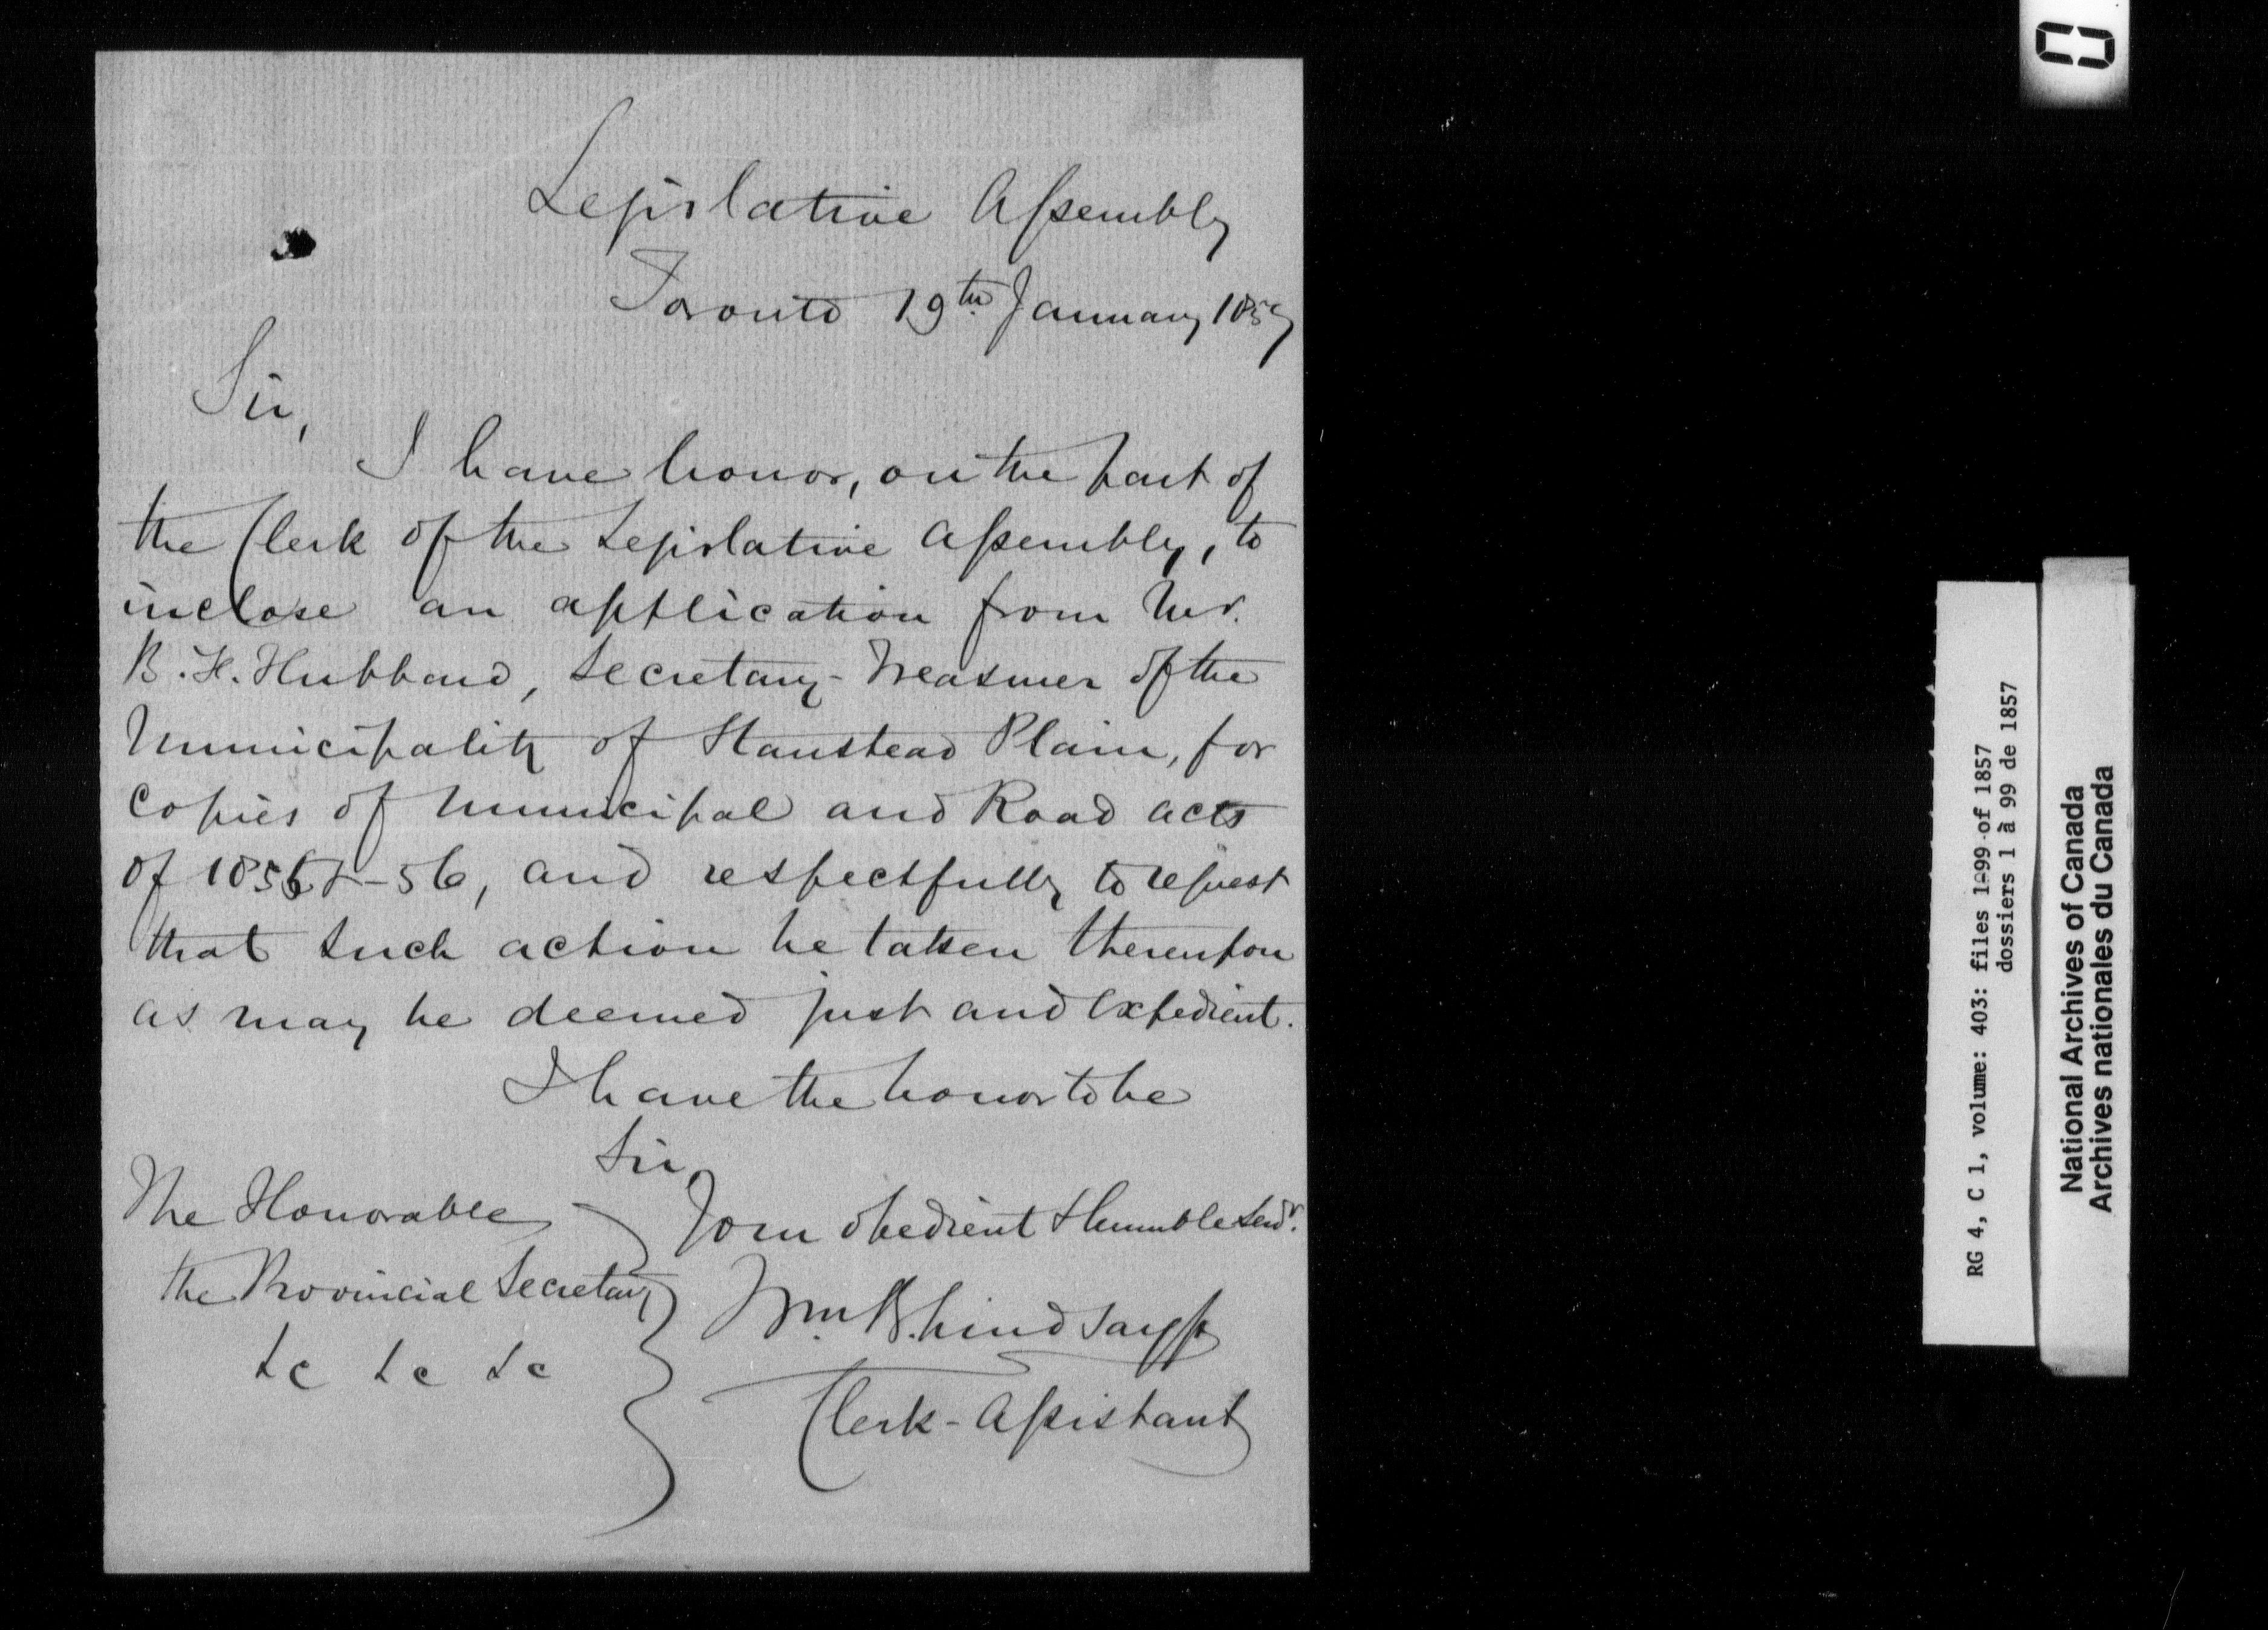 Legislative Assembly
Toronto 19th January 1857
Sir,
I have honor, on the part of
the Clerk of the Legislative Assembly, to
inclose an application from Mr.
B. H. Hubbard, Secretary-Treasurer of the
Municipality of Stanstead Plain, for
Copies of Municipal and Road acts
of 1855-56, and respectfully to request
that such action be taken thereupon
as may be deemed just and expedient.
I have the honor to be
Sir,
Your obedient & humble Servt.
Wm. B. Lindsay Jr
Clerk-Assistant
The Honorable
the Provincial Secretary
&c &c &c
RG 4, C 1, volume: 403: files 1-99 of 1857
dossiers 1 à 99 de 1857
National Archives of Canada
Archives nationales du Canada